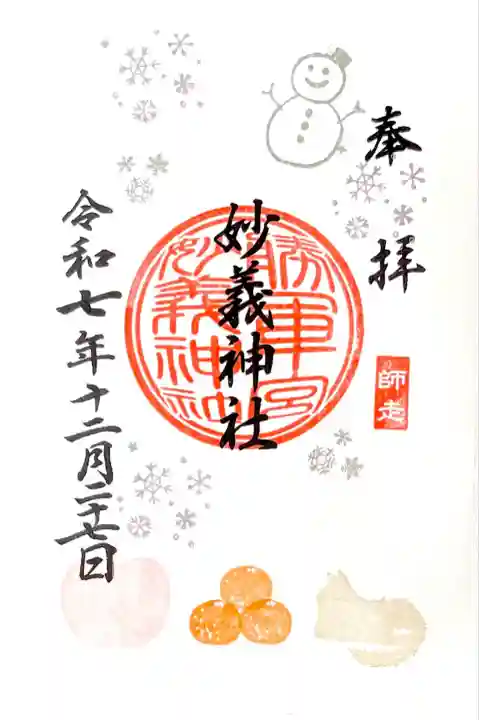 奉拝
師走
妙義神社
勝軍宮
妙義神社
令和七年十二月二十七日